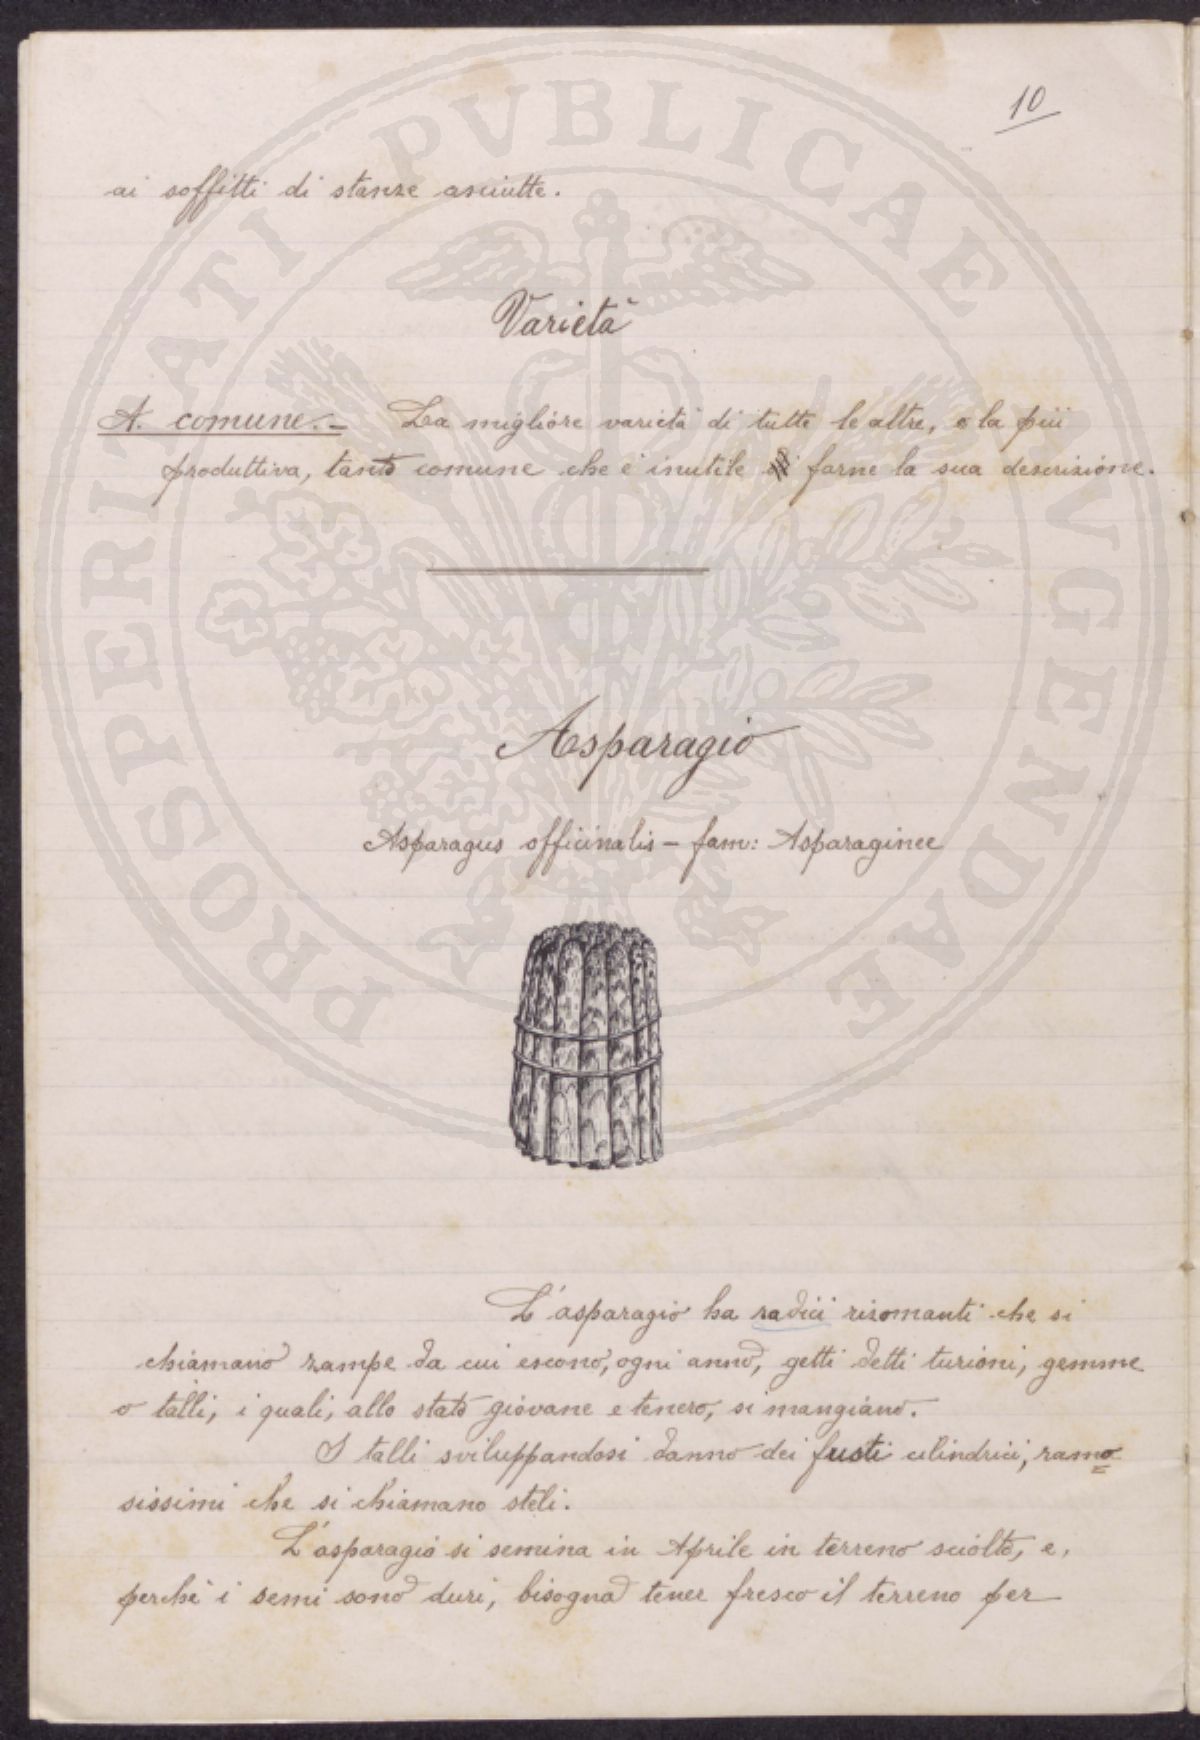 10
ai soffitti di stanze asciutte.
Varietà
A. comune. - La migliore varietà di tutte le altre, e la più
produttiva, tanto comune che è inutile di farne la sua descrizione.
Asparagio
Asparagus officinalis - fam: Asparaginee
L'asparagio ha radici rizomanti che si
chiamano zampe da cui escono, ogni anno, getti detti turioni, gemme
o talli, i quali, allo stato giovane e tenero, si mangiano.
I talli sviluppandosi danno dei fusti cilindrici, ramo=
sissimi che si chiamano steli.
L'asparagio si semina in Aprile in terreno sciolto, e,
perchè i semi sono duri, bisogna tener fresco il terreno per
PROSPERITATI PVBLICAE AVGENDAE